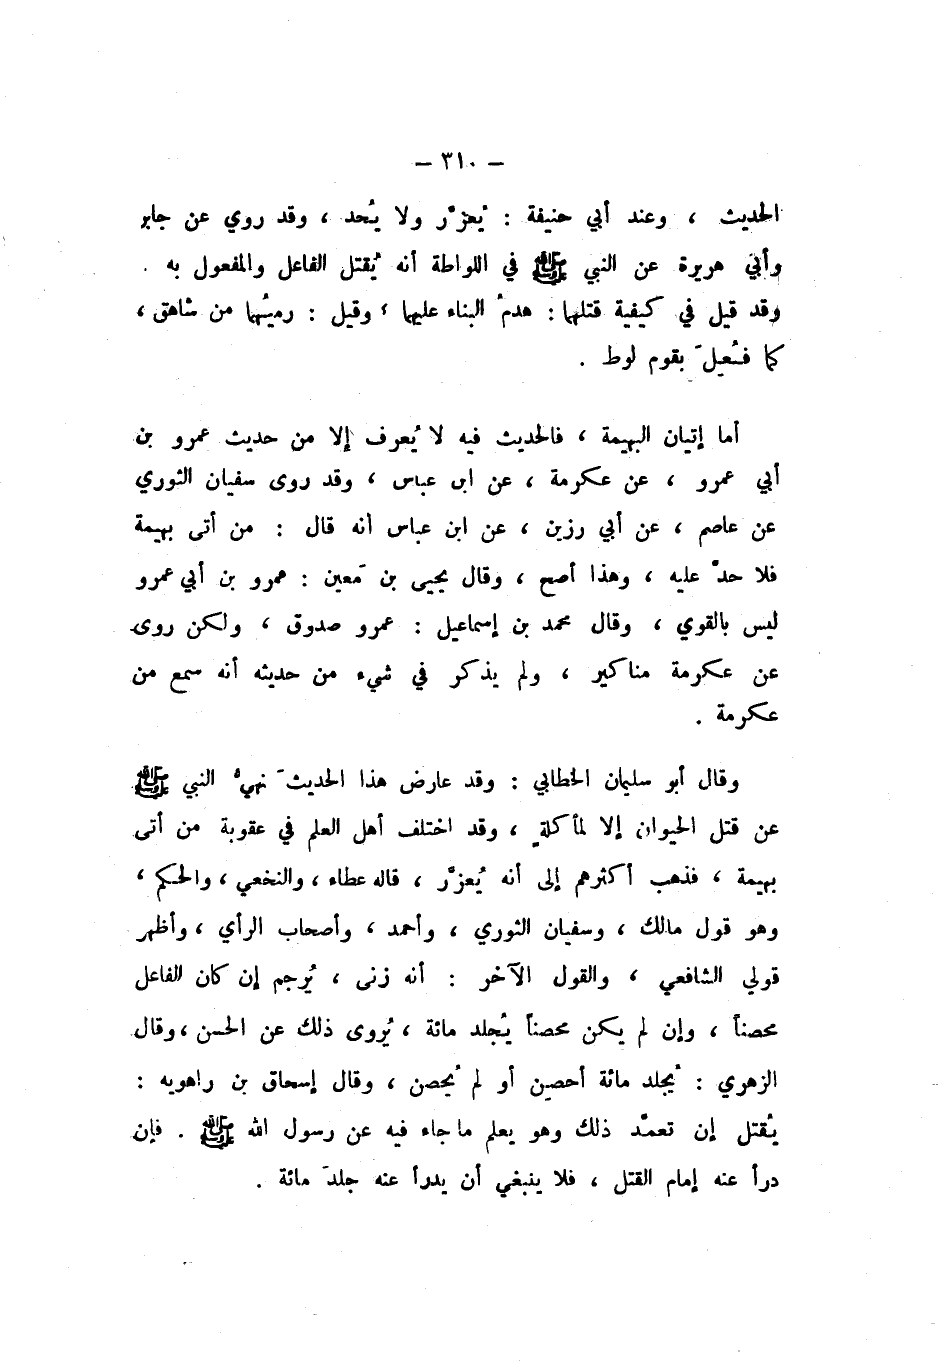 — ٣١٠ —
الحديث ، وعند أبي حنيفة : يُعزَّر ولا يُحد ، وقد روي عن جابر
وأبي هريرة عن النبي ﷺ في اللواطة أنه يُقتل الفاعل والمفعول به .
وقد قيل في كيفية قتلهما : هدمُ البناء عليهما ، وقيل : رميُهما من شاهق ،
كما فُعِلَ بقوم لوط .
أما إتيان البهيمة ، فالحديث فيه لا يُعرف إلا من حديث عمرو بن
أبي عمرو ، عن عكرمة ، عن ابن عباس ، وقد روى سفيان الثوري
عن عاصم ، عن أبي رزين ، عن ابن عباس أنه قال : من أتى بهيمة
فلا حدَّ عليه ، وهذا أصح ، وقال يحيى بن مَعين : عمرو بن أبي عمرو
ليس بالقوي ، وقال محمد بن إسماعيل : عمرو صدوق ، ولكن روى
عن عكرمة مناكير ، ولم يذكر في شيء من حديثه أنه سمع من
عكرمة .
وقال أبو سليمان الخطابي : وقد عارض هذا الحديثَ نهيُ النبي ﷺ
عن قتل الحيوان إلا لمأكلةٍ ، وقد اختلف أهل العلم في عقوبة من أتى
بهيمة ، فذهب أكثرهم إلى أنه يُعزَّر ، قاله عطاء ، والنخعي ، والحكم ،
وهو قول مالك ، وسفيان الثوري ، وأحمد ، وأصحاب الرأي ، وأظهر
قولي الشافعي ، والقول الآخر : أنه زنى ، يُرجم إن كان الفاعل
محصناً ، وإن لم يكن محصناً يُجلد مائة ، يُروى ذلك عن الحسن ، وقال
الزهري : يُجلد مائة أحصن أو لم يُحصن ، وقال إسحاق بن راهويه :
يُقتل إن تعمَّد ذلك وهو يعلم ما جاء فيه عن رسول الله ﷺ . فإن
درأ عنه إمام القتل ، فلا ينبغي أن يدرأ عنه جلدَ مائة .